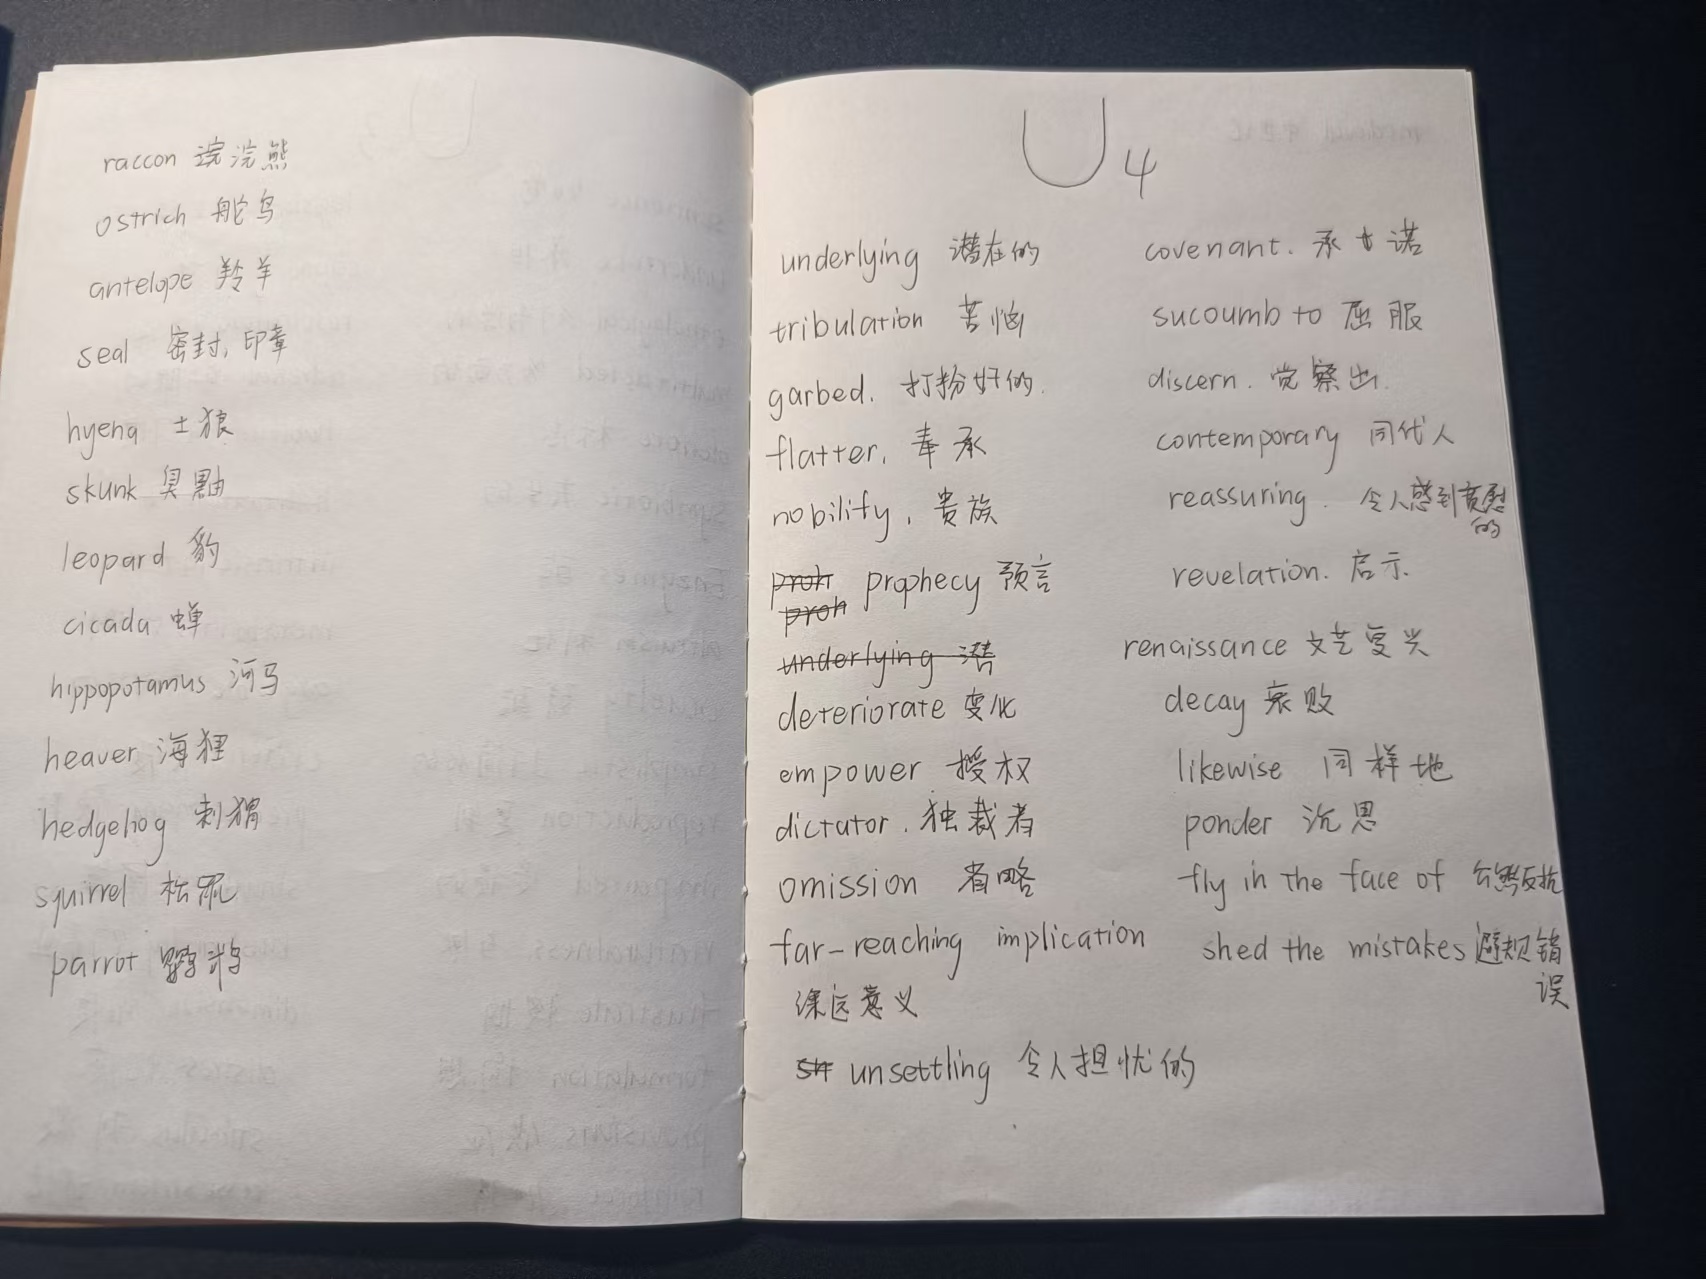 raccon 浣浣熊
ostrich 鸵鸟
antelope 羚羊
seal 密封,印章
hyena 土狼
skunk 臭鼬
leopard 豹
cicada 蝉
hippopotamus 河马
heaver 海狸
hedgehog 刺猬
squirrel 松鼠
parrot 鹦鹉
U4
underlying 潜在的
tribulation 苦恼
garbed. 打扮好的.
flatter, 奉承
nobility, 贵族
proh prophecy 预言
proh
underlying 潜
deteriorate 变化
empower 授权
dictator. 独裁者
omission 省略
far-reaching implication
深远意义
unsettling 令人担忧的
covenant. 承诺
sucoumb to 屈服
discern. 觉察出.
contemporary 同代人
reassuring. 令人感到
的
revelation. 启示.
renaissance 文艺复兴
decay 衰败
likewise 同样地
ponder 沉思
fly in the face of 公然反抗
shed the mistakes 避规错
误